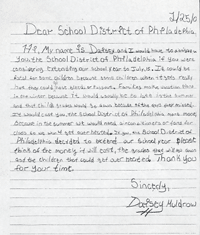 1/25/0
Dear School District of Philadelphia,
Hi, My name is Dorsey and I would have to
you the School District of Philadelphia if you were
considering extending our School year to July 15. It could be
for some children because some children when it gets really
hot they could have asthma or seizures. Families make vacation trips
in the winter because it would usually be to hot in the summer
and that children grades would go down because of the days missed.
I would cost you the School District of Philadelphia more money
because in the summer we would need air conditioners or fans for
us so we won't get over heated. If you the School District of
Philadelphia decided to extend our School year please
think of the money it will cost, the grades that will go down
and the children that could get over heated. Thank you
for your time.
Sincerly,
Dorsey Muldrow